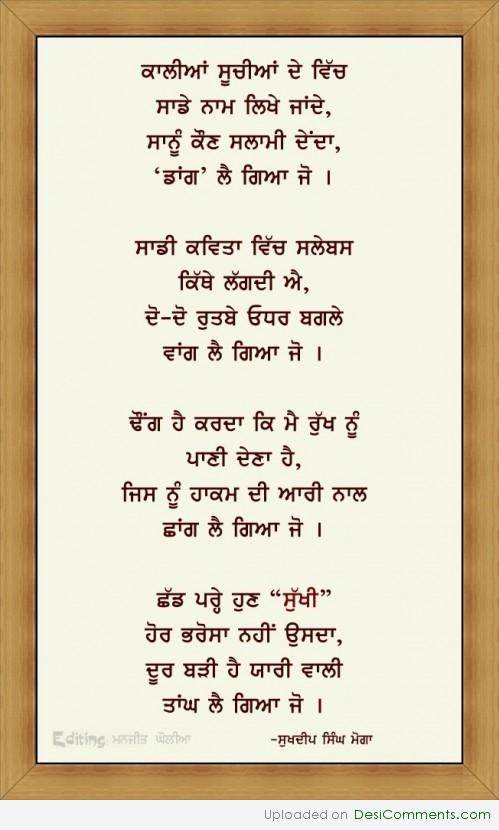 ਕਾਲੀਆਂ ਸੂਚੀਆਂ ਦੇ ਵਿੱਚ
ਸਾਡੇ ਨਾਮ ਲਿਖੇ ਜਾਂਦੇ,
ਸਾਨੂੰ ਕੌਣ ਸਲਾਮੀ ਦੇਂਦਾ,
‘ਡਾਂਗ’ ਲੈ ਗਿਆ ਜੋ ।
ਸਾਡੀ ਕਵਿਤਾ ਵਿੱਚ ਸਲੇਬਸ
ਕਿੱਥੇ ਲੱਗਦੀ ਐ,
ਦੋ-ਦੋ ਰੁਤਬੇ ਓਧਰ ਬਗਲੇ
ਵਾਂਗ ਲੈ ਗਿਆ ਜੋ ।
ਢੌਂਗ ਹੈ ਕਰਦਾ ਕਿ ਮੈ ਰੁੱਖ ਨੂੰ
ਪਾਣੀ ਦੇਣਾ ਹੈ,
ਜਿਸ ਨੂੰ ਹਾਕਮ ਦੀ ਆਰੀ ਨਾਲ
ਛਾਂਗ ਲੈ ਗਿਆ ਜੋ ।
ਛੱਡ ਪਰ੍ਹੇ ਹੁਣ “ਸੁੱਖੀ”
ਹੋਰ ਭਰੋਸਾ ਨਹੀਂ ਉਸਦਾ,
ਦੂਰ ਬੜੀ ਹੈ ਯਾਰੀ ਵਾਲੀ
ਤਾਂਘ ਲੈ ਗਿਆ ਜੋ ।
Editing: ਮਨਜੀਤ ਘੌਲੀਆ
-ਸੁਖਦੀਪ ਸਿੰਘ ਮੋਗਾ
Uploaded on DesiComments.com